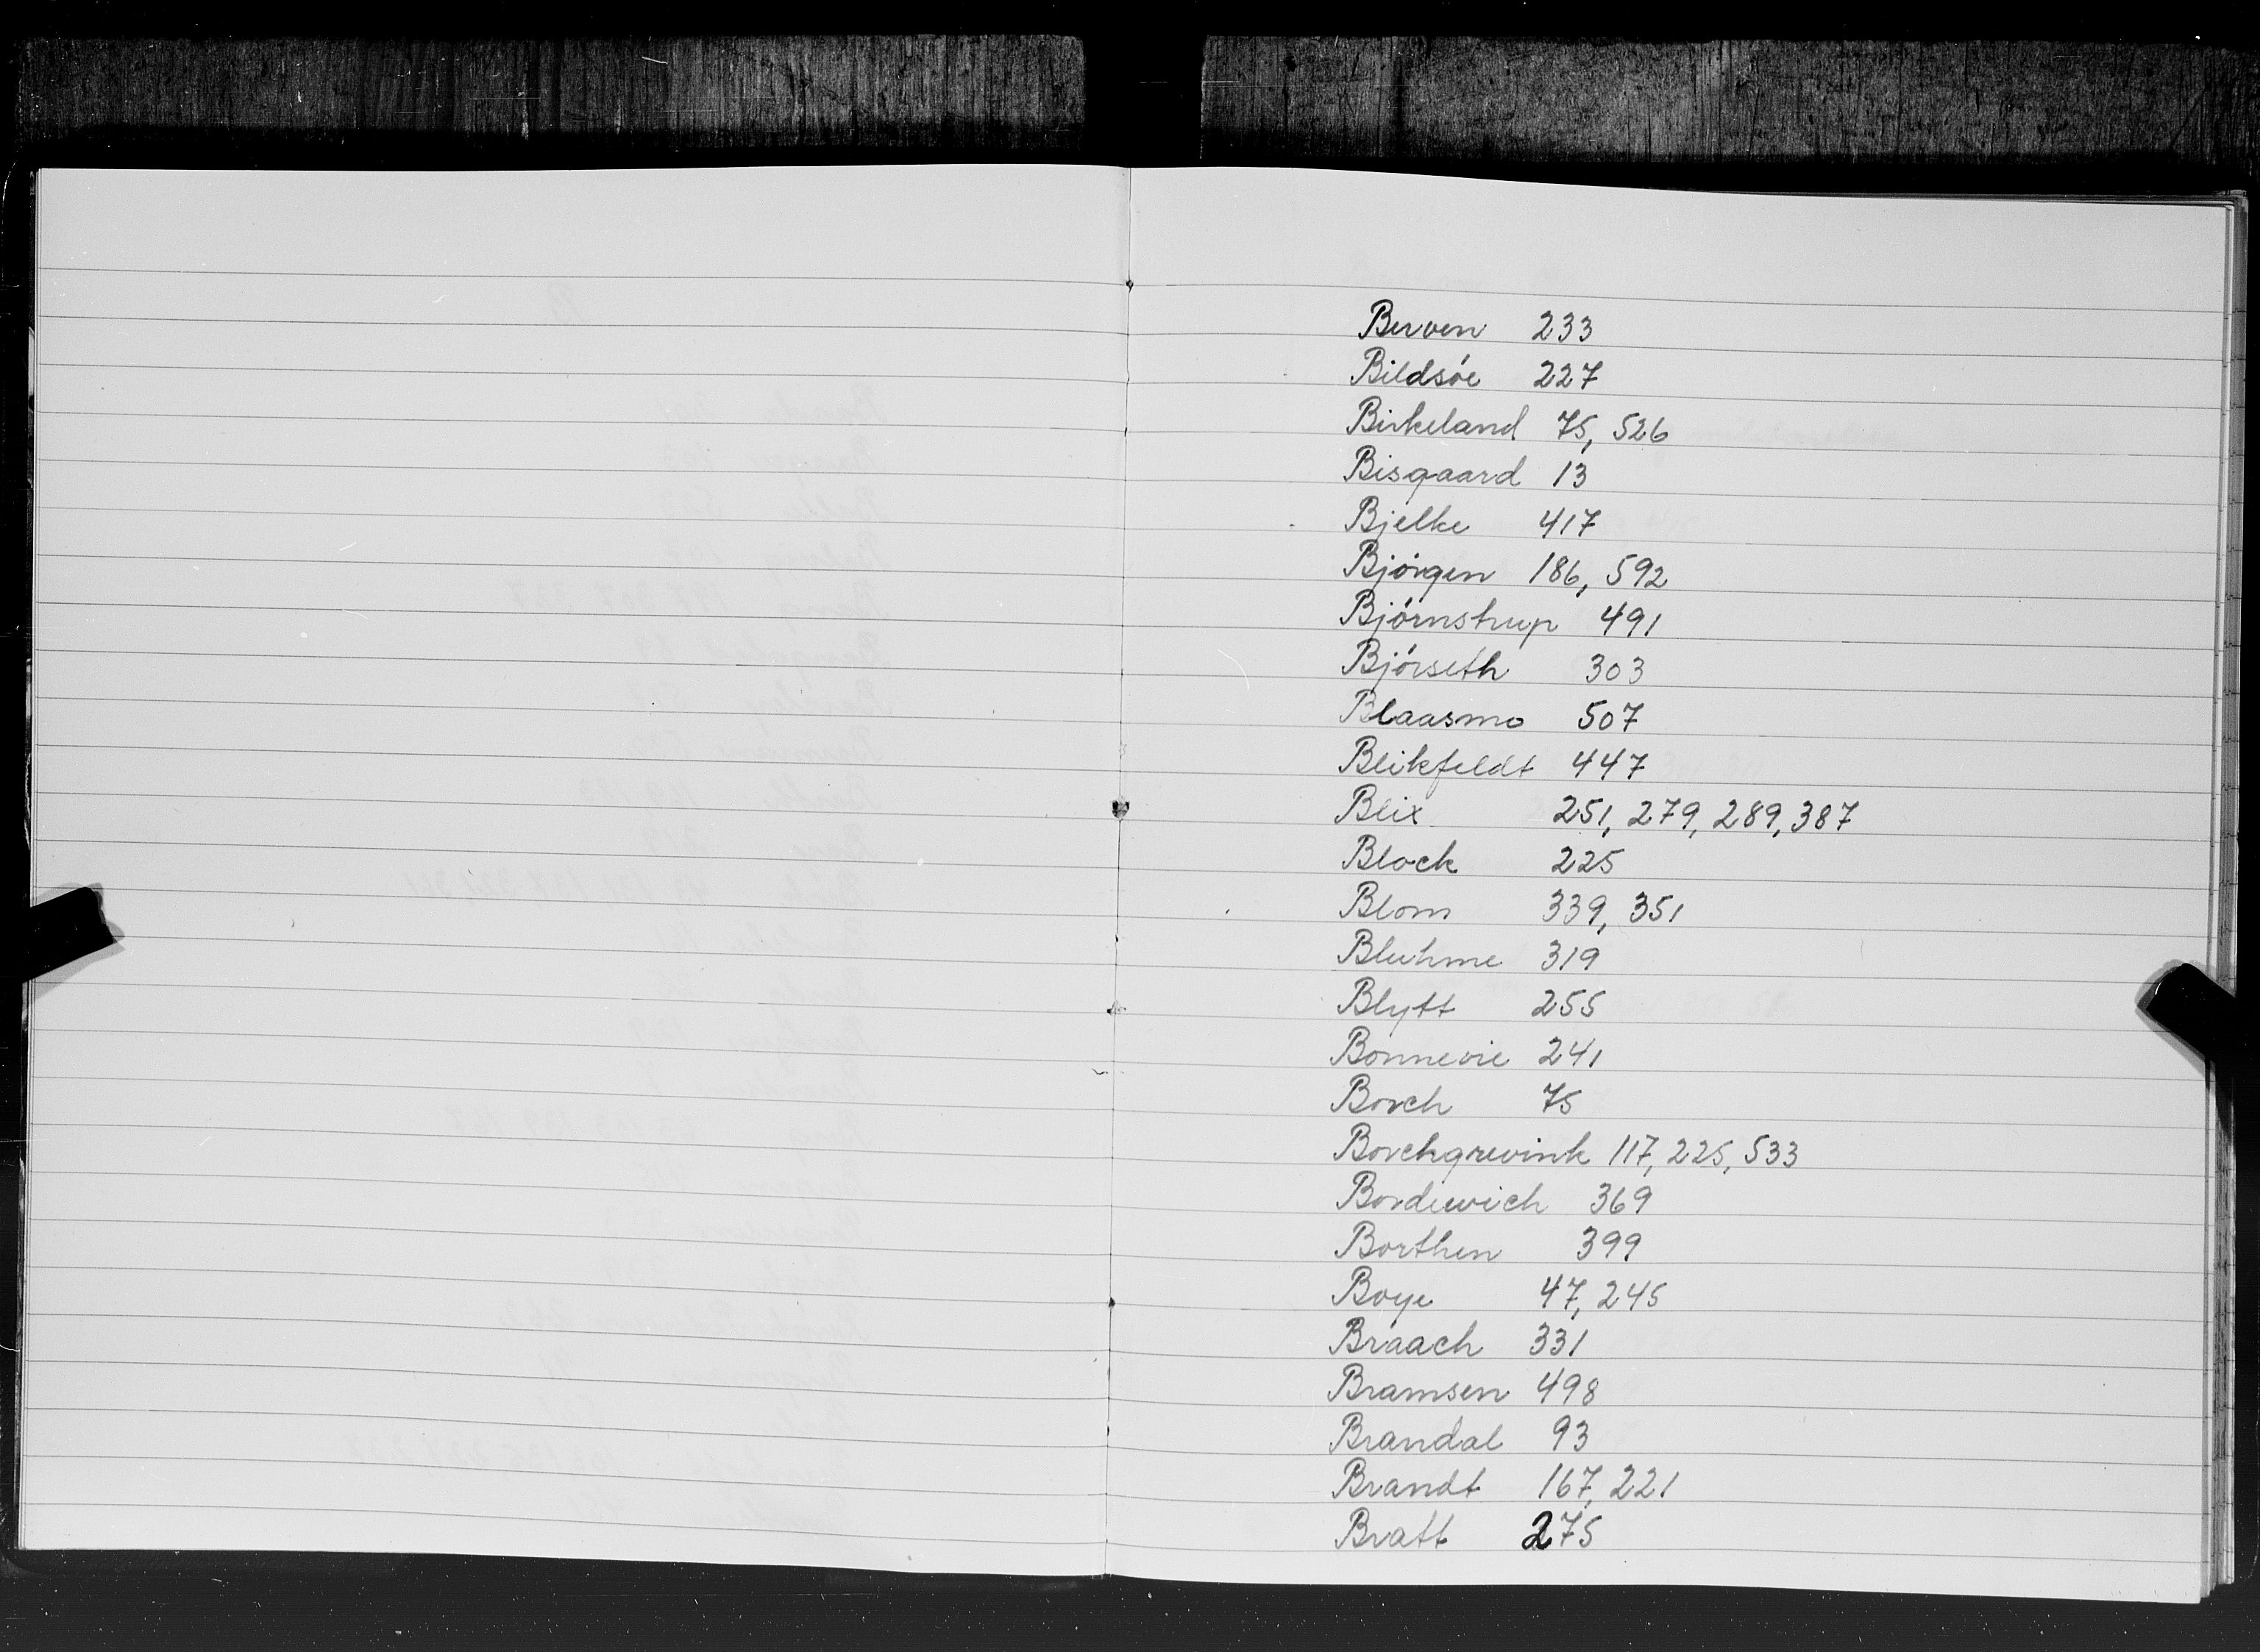 Berven 233
Bildsøe 227
Birkeland 75, 526
Bisgaard 13
Bjelke 417
Bjørgen 186, 592
Bjørnstrup 491
Bjørseth 303
Blaasmo 507
Blikfeldt 447
Blix 251, 279, 289, 387
Block 225
Blom 339, 351
Bluhme 319
Blytt 255
Bonnevie 241
Borch 75
Borchgrevink 117, 225, 533
Bordewich 369
Borthen 399
Boye 47, 245
Braach 331
Bramsen 498
Brandal 93
Brandt 167, 221
Bratt 275